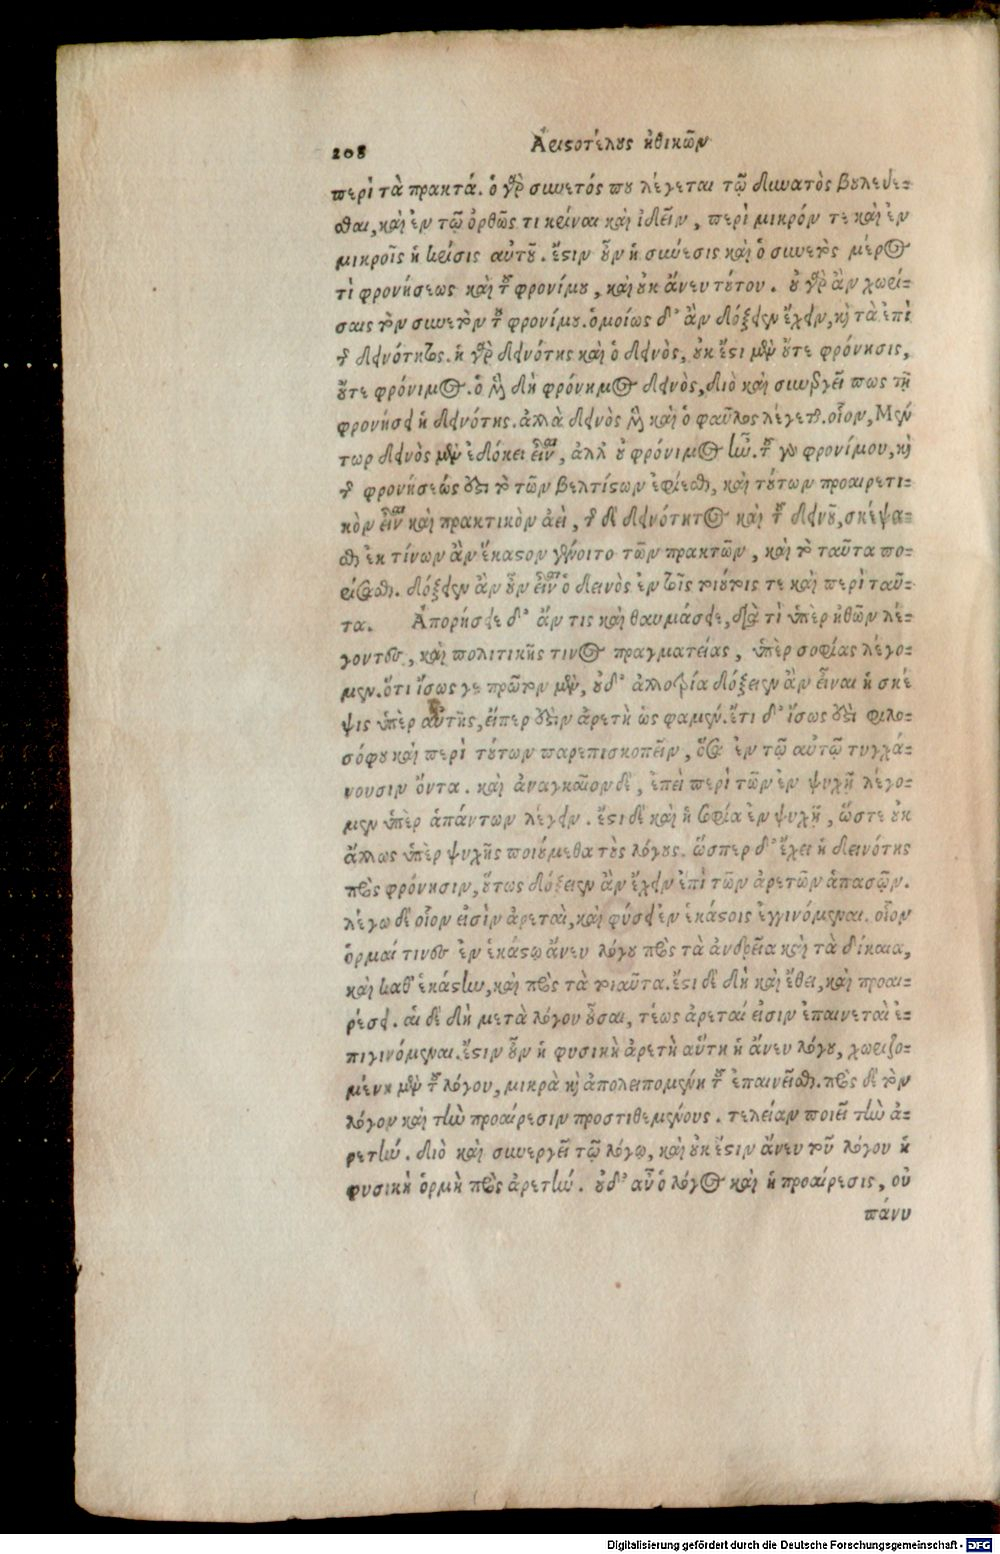 208 Ἀριστοτέλους ἠθικῶν
περὶ τὰ πρακτά. ὁ γὰρ συνετός που λέγεται τῷ δυνατὸς βουλεύε-
σθαι, καὶ ἐν τῷ ὀρθῶς τι κρίναι καὶ ἰδεῖν, περὶ μικρόν τε καὶ ἐν
μικροῖς ἡ κρίσις αὐτοῦ. ἔστιν οὖν ἡ σύνεσις καὶ ὁ συνετὸς μέρος
τὶ φρονήσεως καὶ τοῦ φρονίμου, καὶ οὐκ ἄνευ τούτου. οὐ γὰρ ἂν χωρί-
σαις τὸν συνετὸν τοῦ φρονίμου. ὁμοίως δ' ἂν δόξειεν ἔχειν, καὶ τὰ ἐπὶ
τῆς δεινότητος. ἡ γὰρ δεινότης καὶ ὁ δεινὸς, οὐκ ἔστι μὲν οὔτε φρόνησις,
οὔτε φρόνιμος. ὁ μέντοι δὴ φρόνημος δεινὸς, διὸ καὶ συνεργεῖ πως τῇ
φρονήσει ἡ δεινότης. ἀλλὰ δεινὸς μὲν καὶ ὁ φαῦλος λέγεται. οἷον, Μέν
τωρ δεινὸς μὲν ἐδόκει εἶναι, ἀλλ' οὐ φρόνιμος ἦν. τοῦ γὰρ φρονίμου, καὶ
τῆς φρονήσεώς ἐστι τὸ τῶν βελτίστων ἐφίεσθαι, καὶ τούτων προαιρετι-
κὸν εἶναι καὶ πρακτικὸν ἀεὶ, τῆς δὲ δεινότητος καὶ τοῦ δεινοῦ, σκέψα-
σθαι ἐκ τίνων ἂν ἕκαστον γένοιτο τῶν πρακτῶν, καὶ τὸ ταῦτα πο-
ρίσασθαι. δόξειεν ἂν οὖν εἶναι ὁ δεινὸς ἐν τοῖς τοιούτοις τε καὶ περὶ ταῦ-
τα. Ἀπορήσειε δ' ἄν τις καὶ θαυμάσειε, διὰ τὶ ὑπὲρ ἠθῶν λέ-
γοντες, καὶ πολιτικῆς τινος πραγματείας, ὑπὲρ σοφίας λέγο-
μεν. ὅτι ἴσως γε πρῶτον μὲν, οὐδ' ἀλλοτρία δόξειεν ἂν εἶναι ἡ σκέ
ψις ὑπὲρ αὐτῆς, εἴπερ ἐστὶν ἀρετὴ ὡς φαμέν. ἔτι δ' ἴσως ἐστὶ φιλο-
σόφου καὶ περὶ τούτων παρεπισκοπεῖν, ὅσα ἐν τῷ αὐτῷ τυγχά-
νουσιν ὄντα. καὶ ἀναγκαῖον δὲ, ἐπεὶ περὶ τῶν ἐν ψυχῇ λέγο-
μεν ὑπὲρ ἁπάντων λέγειν. ἔστι δὲ καὶ ἡ σοφία ἐν ψυχῇ, ὥστε οὐκ
ἄλλως ὑπὲρ ψυχῆς ποιούμεθα τοὺς λόγους. ὥσπερ δ' ἔχει ἡ δεινότης
πρὸς φρόνησιν, οὕτως δόξειεν ἂν ἔχειν ἐπὶ τῶν ἀρετῶν ἁπασῶν.
λέγω δὲ οἷον εἰσὶν ἀρεταὶ, καὶ φύσει ἐν ἑκάστοις ἐγγινόμεναι. οἷον
ὁρμαί τινες ἐν ἑκάστῳ ἄνευ λόγου πρὸς τὰ ἀνδρεῖα καὶ τὰ δίκαια,
καὶ καθ' ἑκάστην, καὶ πρὸς τὰ τοιαῦτα. ἔστι δὲ δὴ καὶ ἔθει, καὶ προαι-
ρέσει. αἱ δὲ δὴ μετὰ λόγου οὖσαι, τέως ἀρεταί εἰσιν ἐπαινεταὶ ἐ-
πιγινόμεναι. ἔστιν οὖν ἡ φυσικὴ ἀρετὴ αὕτη ἡ ἄνευ λόγου, χωριζο-
μένη μὲν τοῦ λόγου, μικρὰ καὶ ἀπολειπομένη τοῦ ἐπαινεῖσθαι. πρὸς δὲ τὸν
λόγον καὶ τὴν προαίρεσιν προστιθεμένους. τελείαν ποιεῖ τὴν ἀ-
ρετήν. διὸ καὶ συνεργεῖ τῷ λόγῳ, καὶ οὐκ ἔστιν ἄνευ τοῦ λόγου ἡ
φυσικὴ ὁρμὴ πρὸς ἀρετήν. οὐδ' αὖ ὁ λόγος καὶ ἡ προαίρεσις, οὐ
πάνυ
Digitalisierung gefördert durch die Deutsche Forschungsgemeinschaft - DFG